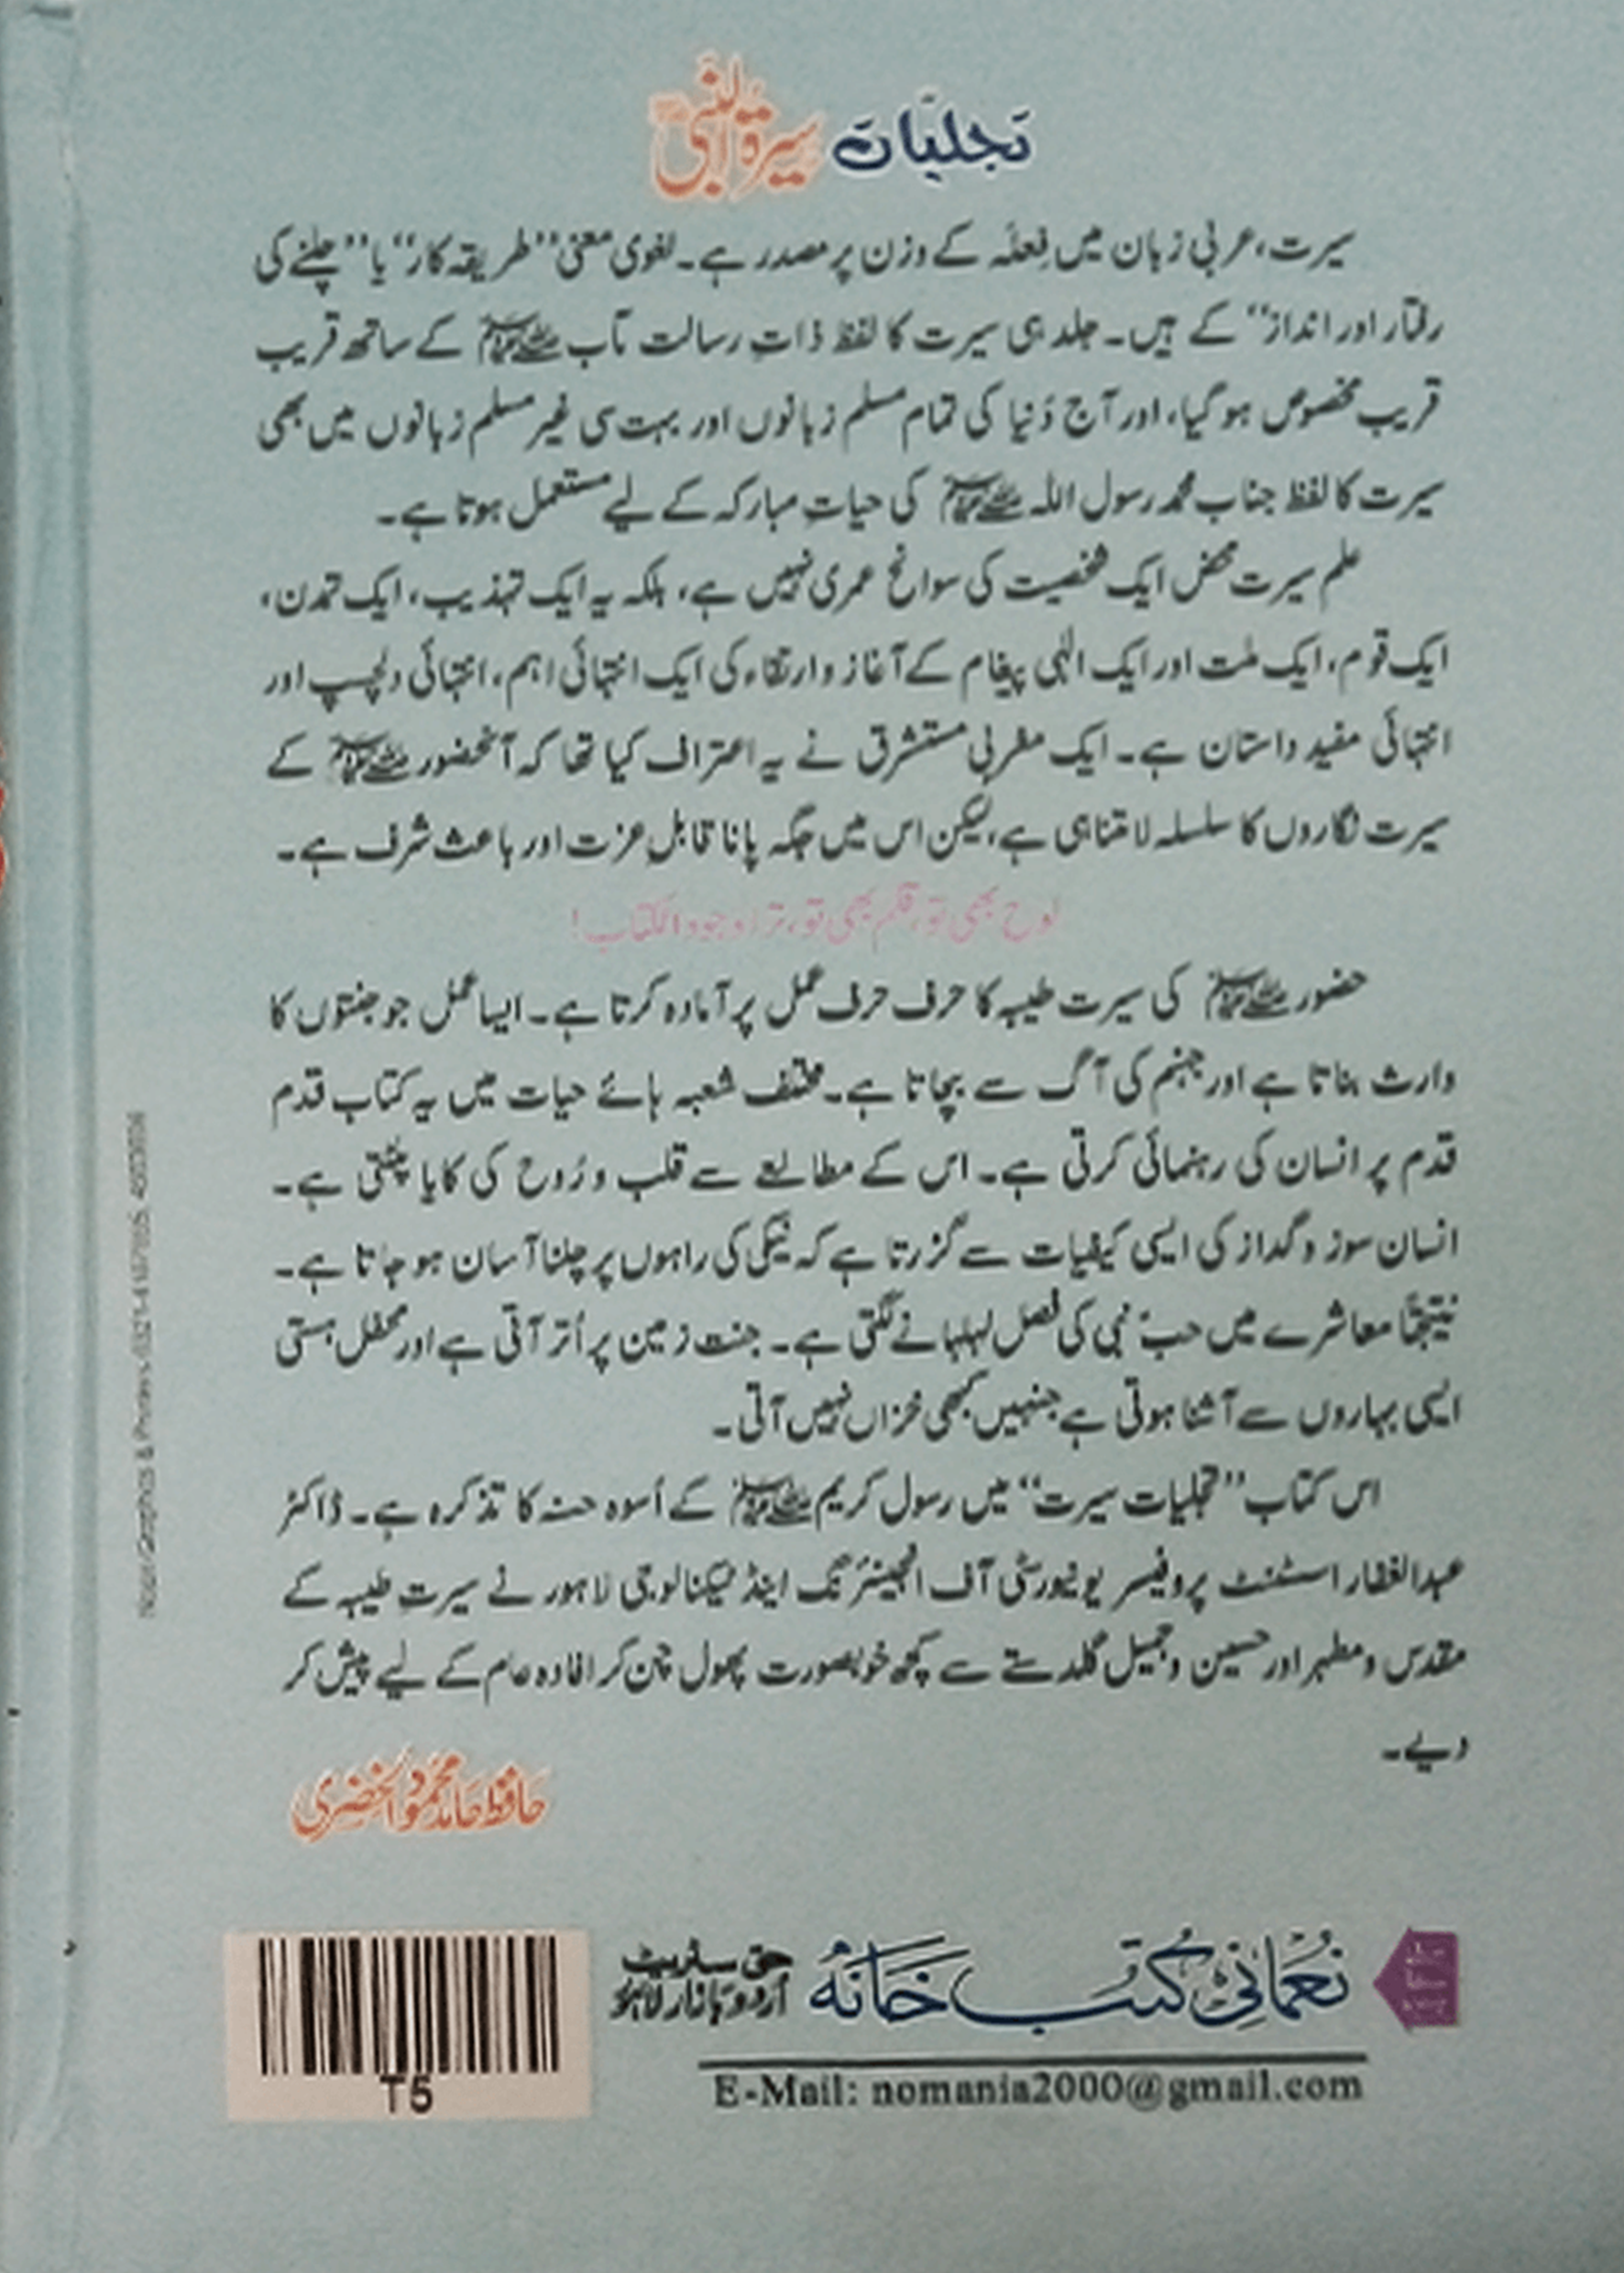 تجلیات سیرۃ النبی ﷺ
سیرت، عربی زبان میں فِعلَہ کے وزن پر مصدر ہے۔ لغوی معنی ”طریقہ کار“ یا ”چلنے کی
رفتار اور انداز“ کے ہیں۔ جلد ہی سیرت کا لفظ ذاتِ رسالت مآب ﷺ کے ساتھ قریب
قریب مخصوص ہو گیا، اور آج دُنیا کی تمام مسلم زبانوں اور بہت سی غیر مسلم زبانوں میں بھی
سیرت کا لفظ جناب محمد رسول اللہ ﷺ کی حیاتِ مبارکہ کے لیے مستعمل ہوتا ہے۔
علم سیرت محض ایک شخصیت کی سوانح عمری نہیں ہے، بلکہ یہ ایک تہذیب، ایک تمدن،
ایک قوم، ایک ملت اور ایک الٰہی پیغام کے آغاز و ارتقاء کی ایک انتہائی اہم، انتہائی دلچسپ اور
انتہائی مفید داستان ہے۔ ایک مغربی مستشرق نے یہ اعتراف کیا تھا کہ آنحضور ﷺ کے
سیرت نگاروں کا سلسلہ لامتناہی ہے، لیکن اس میں جگہ پانا قابلِ عزت اور باعث شرف ہے۔
لوح بھی تو، قلم بھی تو، ترا وجود الکتاب!
حضور ﷺ کی سیرت طیبہ کا حرف حرف عمل پر آمادہ کرتا ہے۔ ایسا عمل جو جنتوں کا
وارث بناتا ہے اور جہنم کی آگ سے بچاتا ہے۔ مختلف شعبہ ہائے حیات میں یہ کتاب قدم
قدم پر انسان کی رہنمائی کرتی ہے۔ اس کے مطالعے سے قلب و رُوح کی کایا پلٹتی ہے۔
انسان سوز و گداز کی ایسی کیفیات سے گزرتا ہے کہ نیکی کی راہوں پر چلنا آسان ہو جاتا ہے۔
نتیجتًا معاشرے میں حبِّ نبی کی فصل لہلہانے لگتی ہے۔ جنت زمین پر اُتر آتی ہے اور محفل ہستی
ایسی بہاروں سے آشنا ہوتی ہے جنہیں کبھی خزاں نہیں آتی۔
اس کتاب ”تجلیات سیرت“ میں رسول کریم ﷺ کے اُسوہ حسنہ کا تذکرہ ہے۔ ڈاکٹر
عبدالغفار اسسٹنٹ پروفیسر یونیورسٹی آف انجینئرنگ اینڈ ٹیکنالوجی لاہور نے سیرتِ طیبہ کے
مقدس و مطہر اور حسین و جمیل گلدستے سے کچھ خوبصورت پھول چن کر افادہ عام کے لیے پیش کر
دیے۔
حافظ حامد محمود الخضری
نعمانی کتب خانہ
حق سٹریٹ
اُردو بازار لاہور
E-Mail: nomania2000@gmail.com
T5